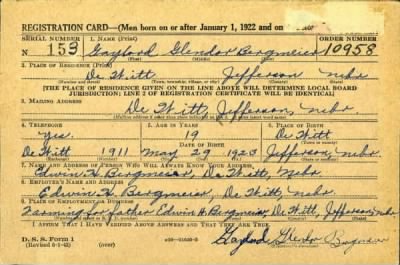 REGISTRATION CARD—(Men born on or after January 1, 1922 and on
SERIAL NUMBER 1. NAME (Print) ORDER NUMBER
N 153 Gaylord Glendor Bergmeier 10958
(First) (Middle) (Last)
2. PLACE OF RESIDENCE (Print)
De Witt Jefferson Nebr
[THE PLACE OF RESIDENCE GIVEN ON THE LINE ABOVE WILL DETERMINE LOCAL BOARD
JURISDICTION; LINE 2 OF REGISTRATION CERTIFICATE WILL BE IDENTICAL]
3. MAILING ADDRESS
De Witt, Jefferson, Nebr
4. TELEPHONE 5. AGE IN YEARS 6. PLACE OF BIRTH
yes. 19 De Witt
DATE OF BIRTH
De Witt 1911 May 29 1923 Jefferson, Nebr
7. NAME AND ADDRESS OF PERSON WHO WILL ALWAYS KNOW YOUR ADDRESS
Edwin H. Bergmeier, De Witt, Nebr
8. EMPLOYER'S NAME AND ADDRESS
Edwin H. Bergmeier, De Witt, Nebr.
9. PLACE OF EMPLOYMENT OR BUSINESS
Farming for father Edwin H. Bergmeier, De Witt, Jefferson, Nebr
I AFFIRM THAT I HAVE VERIFIED ABOVE ANSWERS AND THAT THEY ARE TRUE.
D. S. S. Form 1 Gaylord Glendor Bergmeier